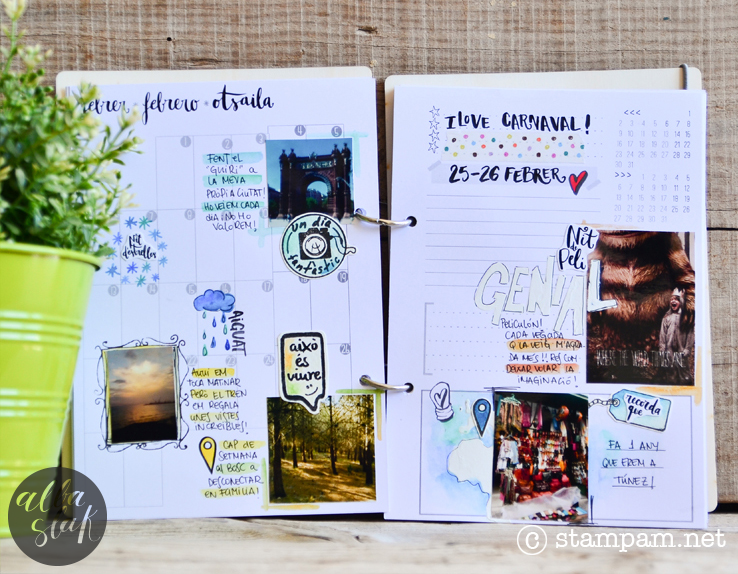 febrer · febrero · otsaila
1 2 3 4 5
FENT EL
"GUIRI" A
LA MEVA
PRÒPIA CIUTAT!
HO VEIEM CADA
DIA I NO HO
VALOREM!
un dia
fantàstic
Nit
d'estrelles
AIGUAT
això
és
viure
AQUÍ EM
TOCA MATINAR
PERÒ EL TREN
EM REGALA
UNES VISTES
INCREÏBLES!
CAP DE
SETMANA
AL BOSC A
DESCONECTAR
EN FAMÍLIA!
I LOVE CARNAVAL!
25-26 FEBRER
<<<
>>>
Nit
de
Peli
GENIAL
PELICULÓN!
CADA VEGADA
Q LA VEIG M'AGRA
DA MÉS!!
DEIXAR VOLAR LA
IMAGINACIÓ!
WHERE THE WILD THINGS ARE
recorda
que
FA 1 ANY
QUE EREM A
TÚNEZ!
alba
© stampam.net